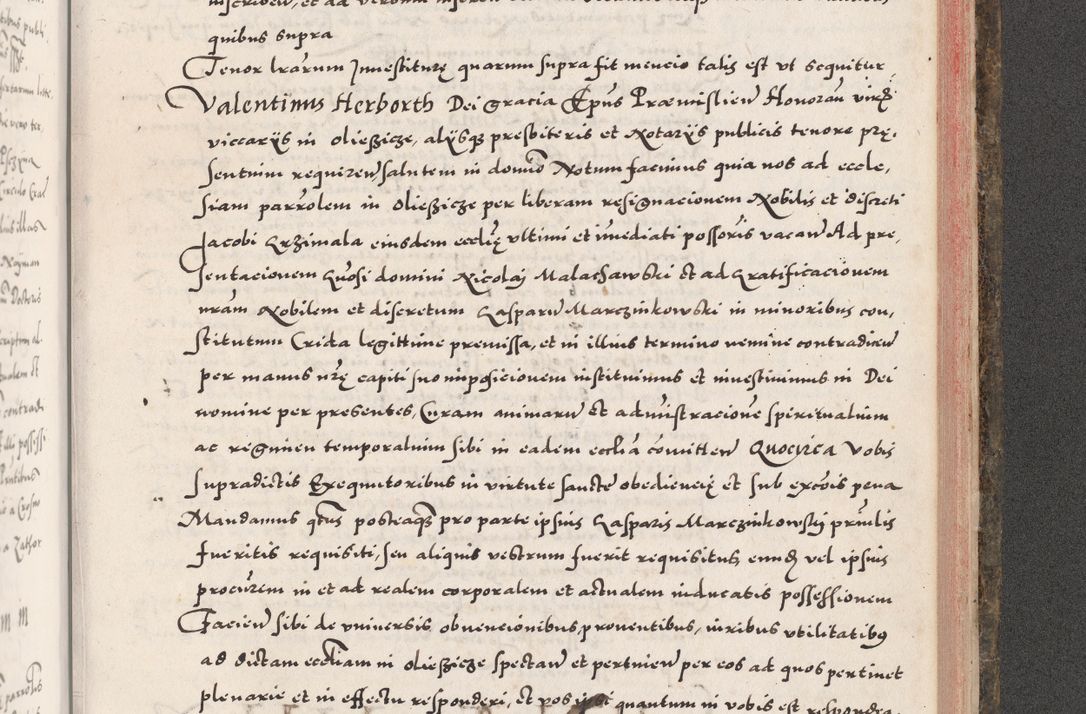 quibus supra
Tenor lrarum Inuestiturę quarum supra fit mencio talis est vt sequitur
Valentinus Herborth Dei gracia Epus Praemislien Honoran viris
viccarijs in Olieszicze, alijsque presbiteris et Notarijs publicis tenore prę,
sentium requiren salutem in domino Notum facimus quia nos ad eccle,
siam parrolem in Olieszicze per liberam resignacionem Nobilis et discreti
Jacobi Krzimala eiusdem ecclię vltimi et imediati possoris vacan Ad pre,
sentacionem Gnosi domini Nicolaj Malachawski et ad gratificacionem
nram Nobilem et discretum Gasparu Marczinkowski in minoribus con,
stitutum Crida legittime premissa, et in illius termino nemine contradicen
per manus nrę capiti suo imposicionem instituimus et inuestiuimus in Dei
nomine per presentes, Curam animaru et admistracione spiritualium
ac regimen temporalium sibi in eadem ecclia comitten Quocirca vobis
supradictis Exequutoribus in virtute sancte obediencię et sub excois pena
Mandamus qtus posteaque pro parte ipsius Gasparis Marczinkowskj priulis
fueritis requisiti, seu aliquis vestrum fuerit requisitus, eundem vel ipsius
procurem in et ad realem corporalem et actualem inducatis possessionem
Facien sibi de vniuersis, obuencionibus, prouentibus, iuribus vtilitatibus
ad dictam eccliam in Olieszicze spectan et pertinen per eos ad quos pertinet
plenarie et in effectu responderi, et vos ipsi quantum in vobis est